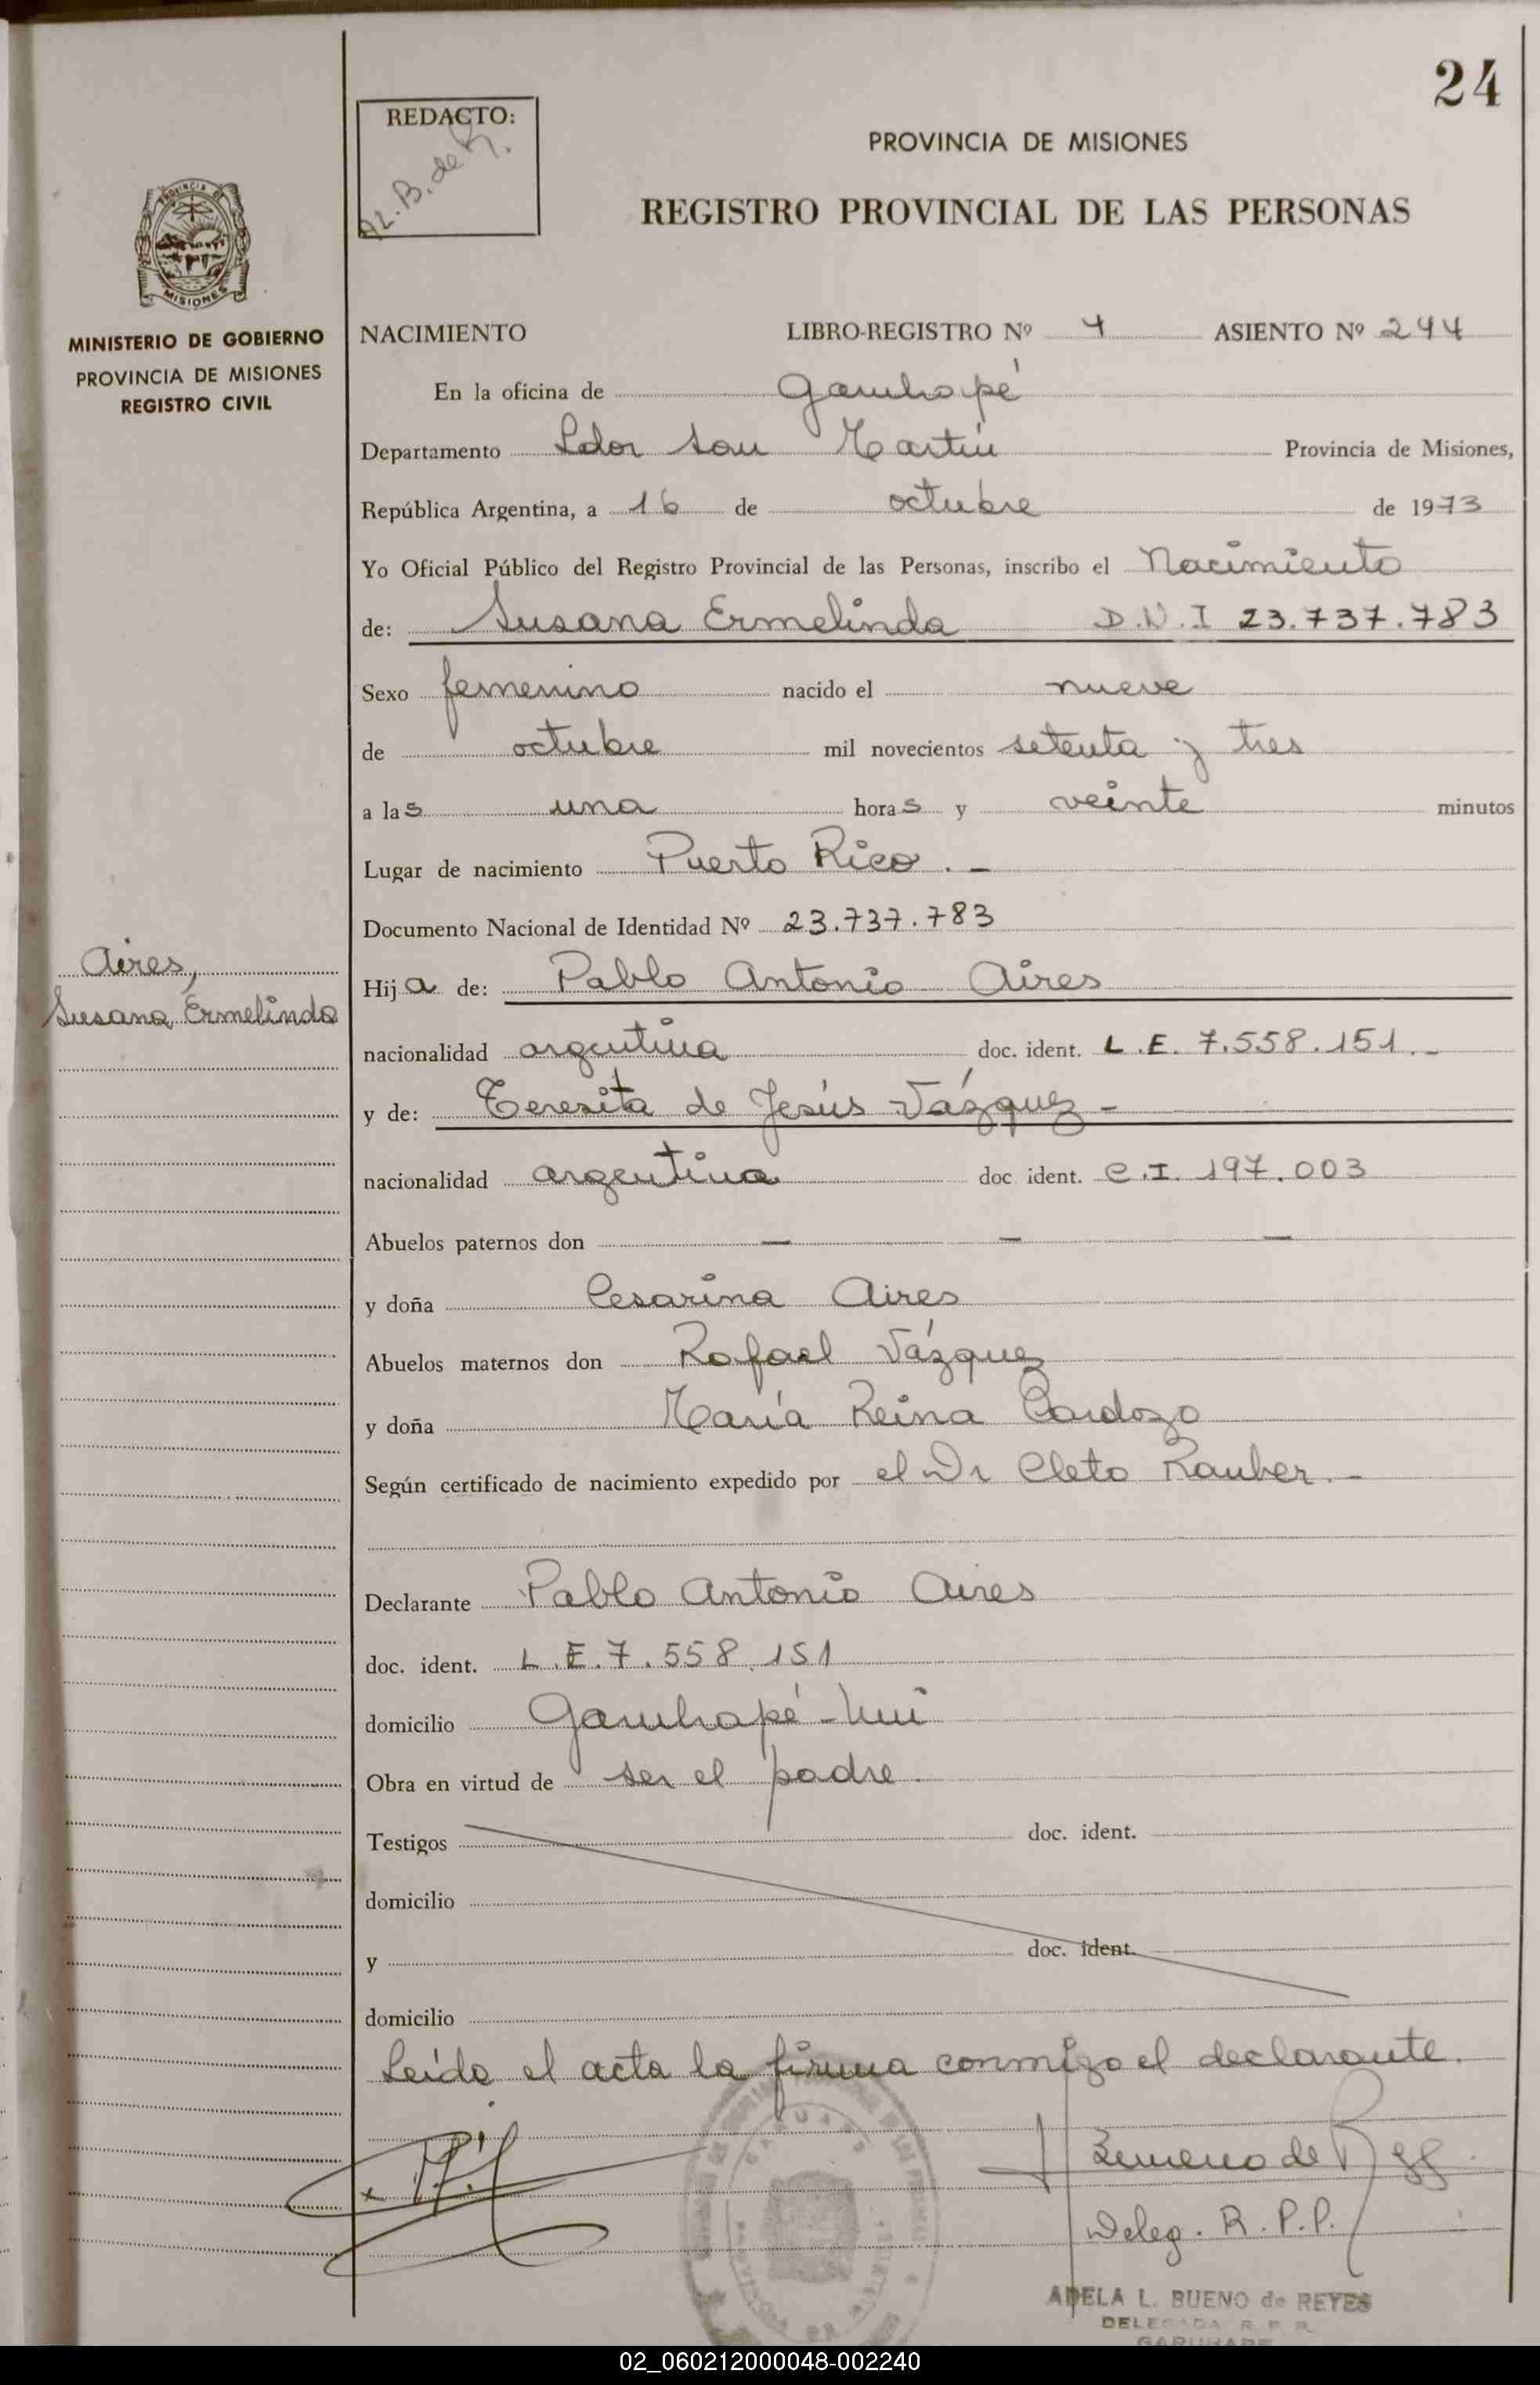 24
REDACTO:
A.L.B. de R.
PROVINCIA DE MISIONES
REGISTRO PROVINCIAL DE LAS PERSONAS
PROVINCIA DE
MISIONES
MINISTERIO DE GOBIERNO
PROVINCIA DE MISIONES
REGISTRO CIVIL
NACIMIENTO LIBRO-REGISTRO Nº 4 ASIENTO Nº 244
En la oficina de Garuhapé
Departamento Ldor San Martín Provincia de Misiones,
República Argentina, a 16 de octubre de 1973
Yo Oficial Público del Registro Provincial de las Personas, inscribo el Nacimiento
de: Susana Ermelinda D.N.I 23.737.783
Sexo femenino nacido el nueve
de octubre mil novecientos setenta y tres
a las una horas y veinte minutos
Lugar de nacimiento Puerto Rico.-
Documento Nacional de Identidad Nº 23.737.783
Aires,
Susana Ermelinda
Hija de: Pablo Antonio Aires
nacionalidad argentina doc. ident. L.E. 7.558.151.-
y de: Teresita de Jesús Vázquez-
nacionalidad argentina doc ident. C.I. 197.003
Abuelos paternos don — — —
y doña Cesarina Aires
Abuelos maternos don Rafael Vázquez
y doña María Reina Cardozo
Según certificado de nacimiento expedido por el Dr Cleto Rauber.-
Declarante Pablo Antonio Aires
doc. ident. L.E. 7.558.151
domicilio Garuhapé-Mni
Obra en virtud de ser el padre.
Testigos doc. ident.
domicilio
y doc. ident.
domicilio
Leída el acta la firma conmigo el declarante.
Deleg. R.P.P.
ADELA L. BUENO de REYES
DELEGADA R. P. P.
GARUHAPE
02_060212000048-002240